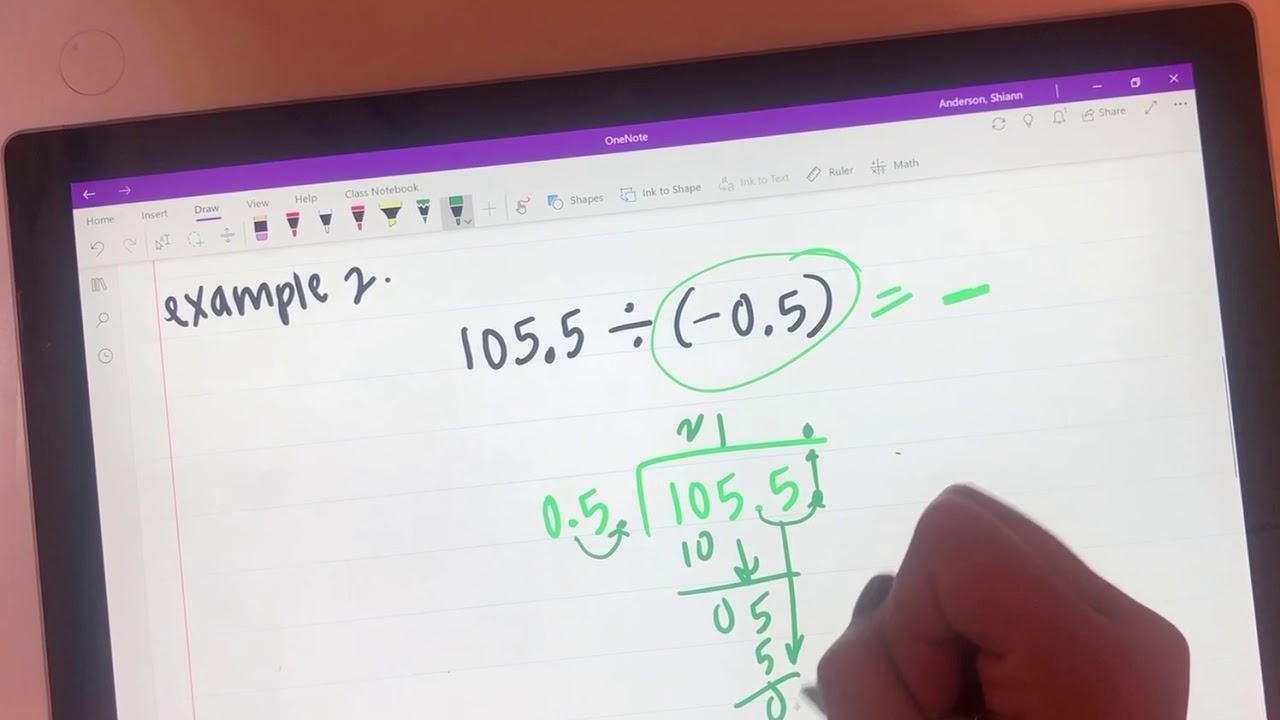 Anderson, Shiann
OneNote
Share
Home Insert Draw View Help Class Notebook
Shapes Ink to Shape Ink to Text Ruler Math
example 2.
105.5 ÷ (-0.5) = -
21 .
0.5 105.5
10
05
5
0